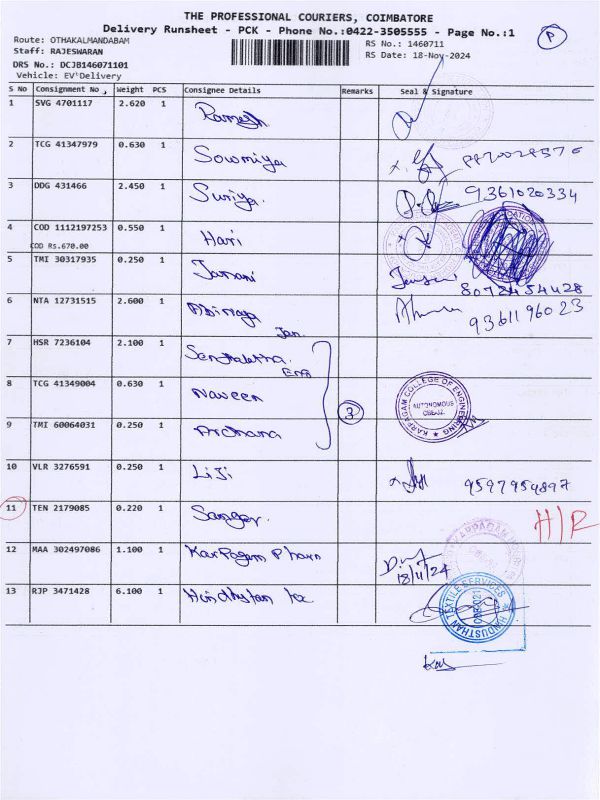 THE PROFESSIONAL COURIERS, COIMBATORE
Delivery Runsheet - PCK - Phone No.:0422-3505555 - Page No.:1
P
Route: OTHAKALMANDABAM
Staff: RAJESWARAN
RS No.: 1460711
RS Date: 18-Nov-2024
DRS No.: DCJB146071101
Vehicle: EV'Delivery
S No Consignment No Weight PCS Consignee Details Remarks Seal & Signature
1 SVG 4701117 2.620 1 Ramesh
2 TCG 41347979 0.630 1 Sowmiya
3 DDG 431466 2.450 1 Suriya. 9361020334
4 COD 1112197253 0.550 1 Hari
COD Rs.670.00
5 TMI 30317935 0.250 1 Janani 8072454428
6 NTA 12731515 2.600 1 Abinaya 9361196023
7 HSR 7236104 2.100 1
8 TCG 41349004 0.630 1 Naveen
3
KARPAGAM COLLEGE OF ENGINEERING
AUTONOMOUS
9 TMI 60064031 0.250 1 Archana
10 VLR 3276591 0.250 1 LiJi 9597954897
11 TEN 2179085 0.220 1 H/R
12 MAA 302497086 1.100 1 Karpagam Pharm
18/11/24
13 RJP 3471428 6.100 1 Hindhustan Tex
HINDUSTHAN TEXTILE SERVICES